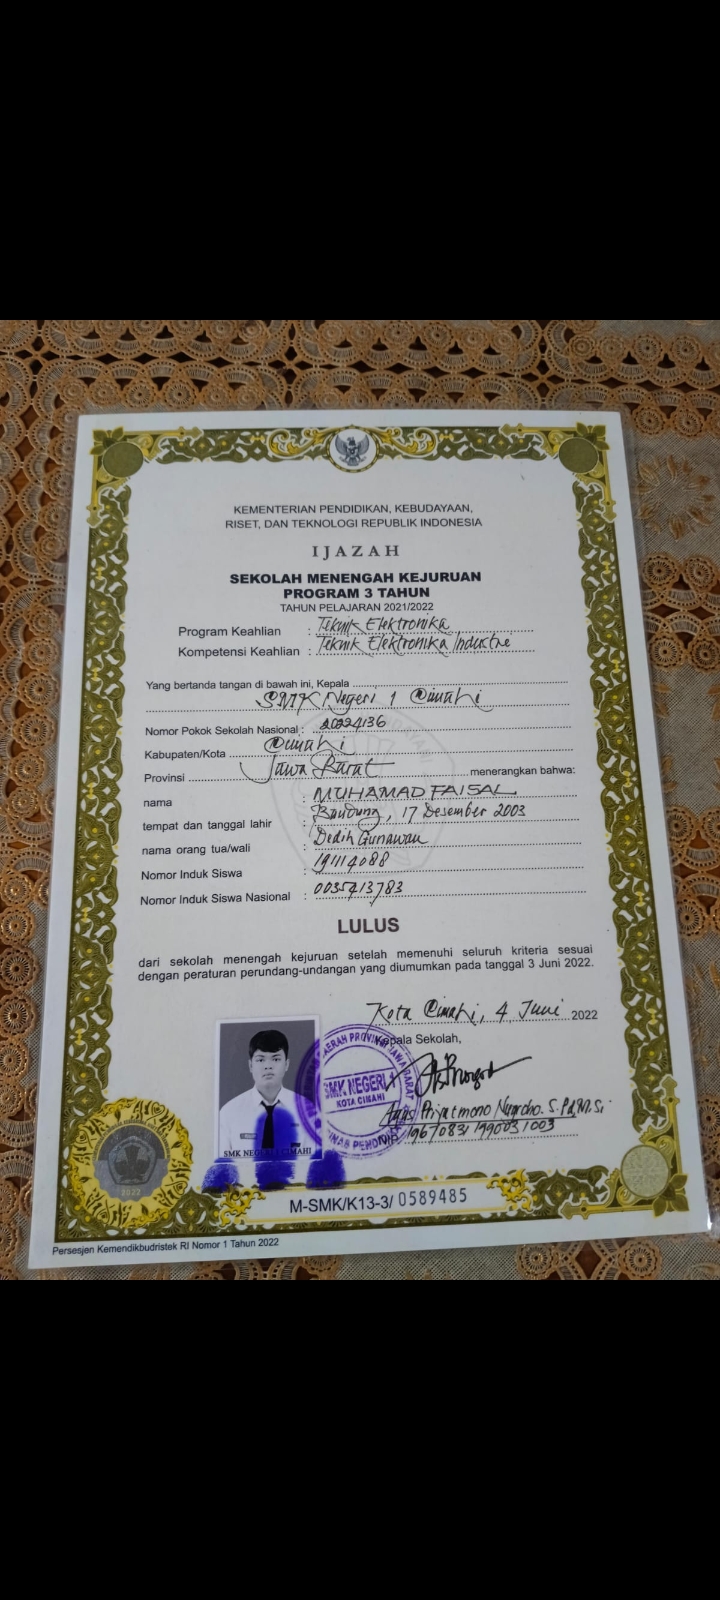 KEMENTERIAN PENDIDIKAN, KEBUDAYAAN,
RISET, DAN TEKNOLOGI REPUBLIK INDONESIA
IJAZAH
SEKOLAH MENENGAH KEJURUAN
PROGRAM 3 TAHUN
TAHUN PELAJARAN 2021/2022
Program Keahlian : Teknik Elektronika
Kompetensi Keahlian : Teknik Elektronika Industri
Yang bertanda tangan di bawah ini, Kepala
SMK Negeri 1 Cimahi
Nomor Pokok Sekolah Nasional : 20224136
Kabupaten/Kota Cimahi
Provinsi Jawa Barat menerangkan bahwa:
nama : MUHAMAD FAISAL
tempat dan tanggal lahir : Bandung, 17 Desember 2003
nama orang tua/wali : Dedih Gunawan
Nomor Induk Siswa : 191114088
Nomor Induk Siswa Nasional : 0035413783
LULUS
dari sekolah menengah kejuruan setelah memenuhi seluruh kriteria sesuai
dengan peraturan perundang-undangan yang diumumkan pada tanggal 3 Juni 2022.
Kota Cimahi, 4 Juni 2022
Kepala Sekolah,
SMK NEGERI 1
KOTA CIMAHI
Agus Priyatmono Nugroho. S.Pd, M.Si
19670831 199003 1003
SMK NEGERI 1 CIMAHI
2022
M-SMK/K13-3/ 0589485
Persesjen Kemendikbudristek RI Nomor 1 Tahun 2022